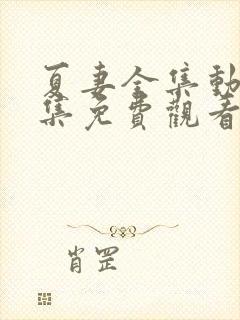 夏妻全集動
集免費觀看
肖罡